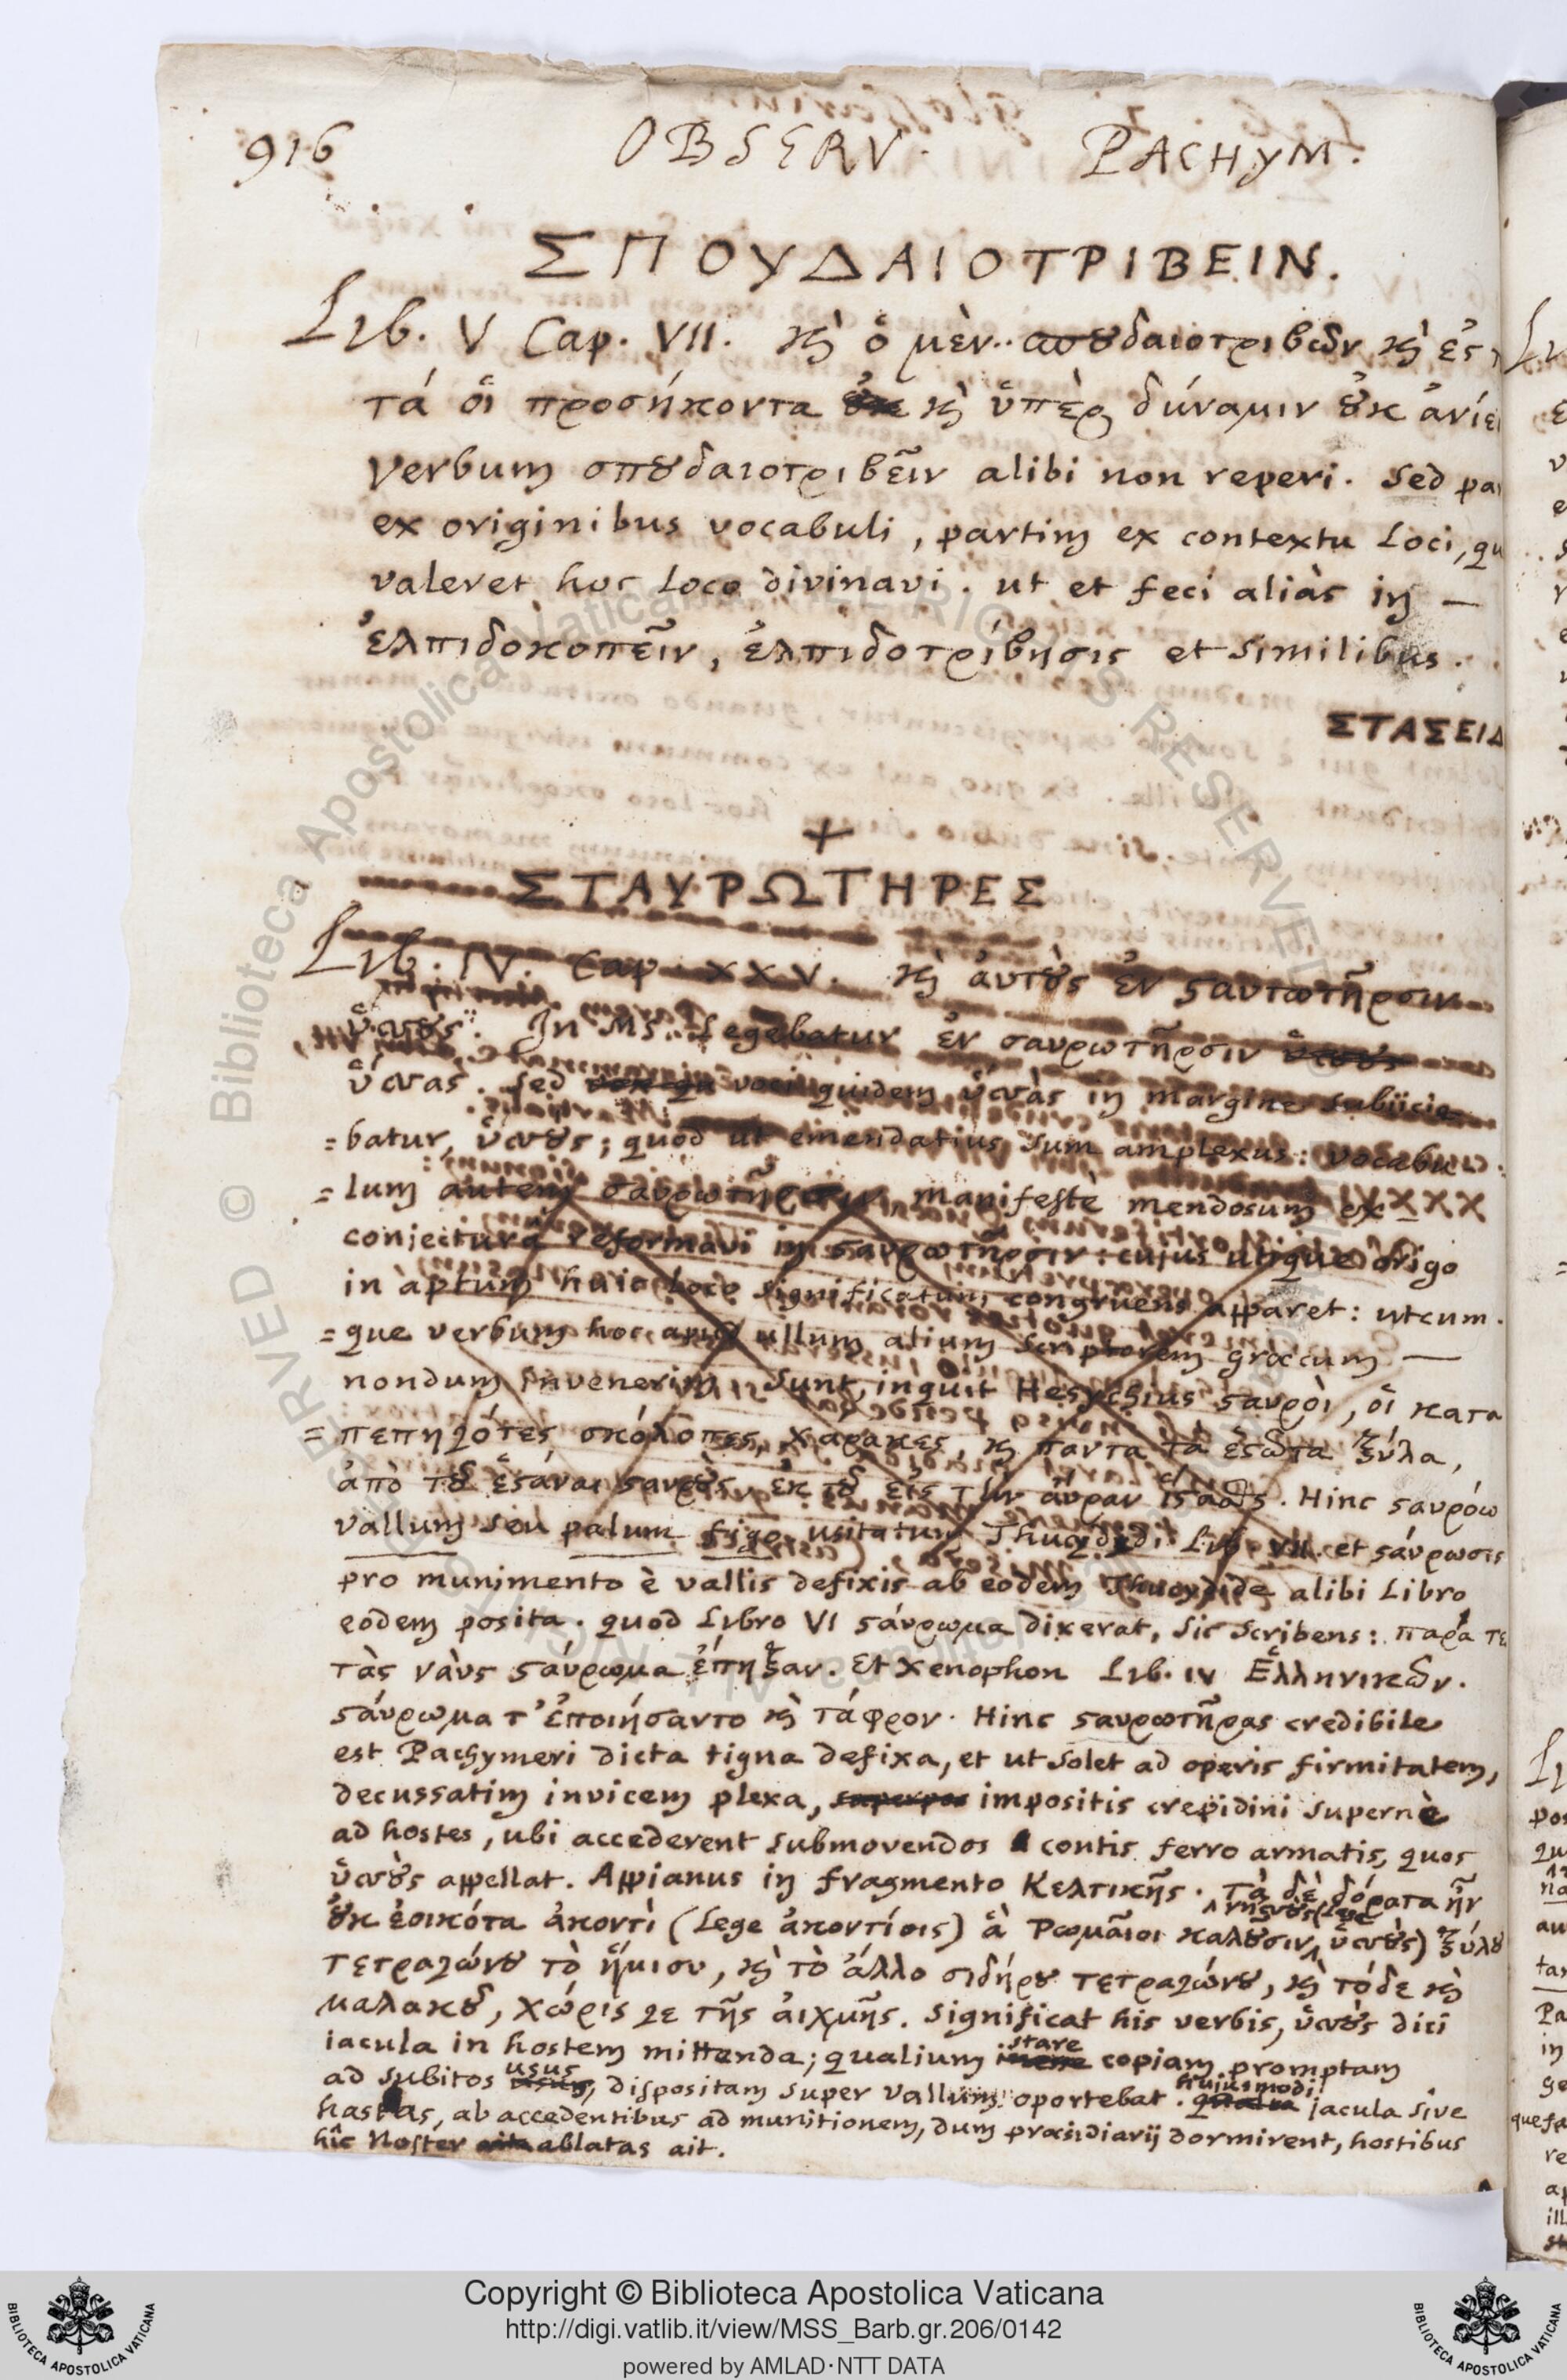 916 OBSERV. PACHYM.
ΣΠΟΥΔΑΙΟΤΡΙΒΕΙΝ.
Lib. V Cap. VII. καὶ ὁ μὲν.. σπουδαιοτριβῶν καὶ ἐς
τά οἱ προσήκοντα καὶ ὑπὲρ δύναμιν οὐκ ἀνίει
Verbum σπουδαιοτριβεῖν alibi non reperi. Sed par
ex originibus vocabuli, partim ex contextu loci, qu
valeret hoc loco divinavi. ut et feci aliàs in —
ἐλπιδοκοπεῖν, ἐλπιδοτρίβησις et similibus.
ΣΤΑΣΕΙΔ
+
ΣΤΑΥΡΩΤΗΡΕΣ
Lib. IV. Cap. XXV. καὶ αὐτοὺς ἐν
ὑσσούς. In Ms. Legebatur ἐν σαυρωτῆρσιν
ὑσσάς. Sed voci quidem ὑσσὰς in margine subijcie
=batur, ὑσσούς; quod ut emendatius sum amplexus: vocabu
=lum autem manifestè mendosum ex
conjecturâ reformavi in σταυρωτῆρσιν: cujus utique origo
in aptum huic loco significatum congruens apparet: utcum.
=que verbum hoc apud ullum alium scriptorem græcum —
nondum invenerim. Sunt, inquit Hesychius σταυροὶ, οἱ κατα
=πεπηγότες σκόλοπες, χάρακες, καὶ πάντα τὰ ἑστῶτα ξύλα,
ἀπὸ τοῦ ἑστάναι σταυροὺς ἐκ τοῦ εἰς τὴν αὖραν ἵστασθαι. Hinc σταυρόω
vallum seu palum figo usitatum Thucydidi Lib. VII. et σταύρωσις
pro munimento è vallis defixis ab eodem Thucydide alibi Libro
eodem posita. quod Libro VI σταύρωμα dixerat, sic scribens: παρά τε
τὰς ναὺς σταύρωμα ἔπηξαν. Et Xenophon Lib. IV Ἑλληνικῶν.
σταύρωμα τ' ἐποιήσαντο καὶ τάφρον. Hinc σταυρωτῆρας credibile
est Pachymeri dicta tigna defixa, et ut solet ad operis firmitatem,
decussatim invicem plexa, impositis crepidini supernè
ad hostes, ubi accederent submovendos contis ferro armatis, quos
ὑσσοὺς appellat. Appianus in fragmento Κελτικῆς. Τὰ δὲ δόρατα ἦν
οὐκ ἐοικότα ἀκοντὶ (lege ἀκοντίοις) ἃ Ῥωμαῖοι καλοῦσιν ὑσσοὺς) ξύλου
τετραγώνου τὸ ἥμισυ, καὶ τὸ ἄλλο σιδήρου τετραγώνου, καὶ τόδε καὶ
μαλακοῦ, χώρις γε τῆς αἰχμῆς. Significat his verbis, ὑσσοὺς dici
iacula in hostem mittenda; qualium stare copiam promptam
ad subitos usus, dispositam super vallum oportebat. hujusmodi jacula sive
hastas, ab accedentibus ad munitionem, dum præsidiarij dormirent, hostibus
hîc Noster ablatas ait.
Copyright © Biblioteca Apostolica Vaticana
http://digi.vatlib.it/view/MSS_Barb.gr.206/0142
powered by AMLAD·NTT DATA